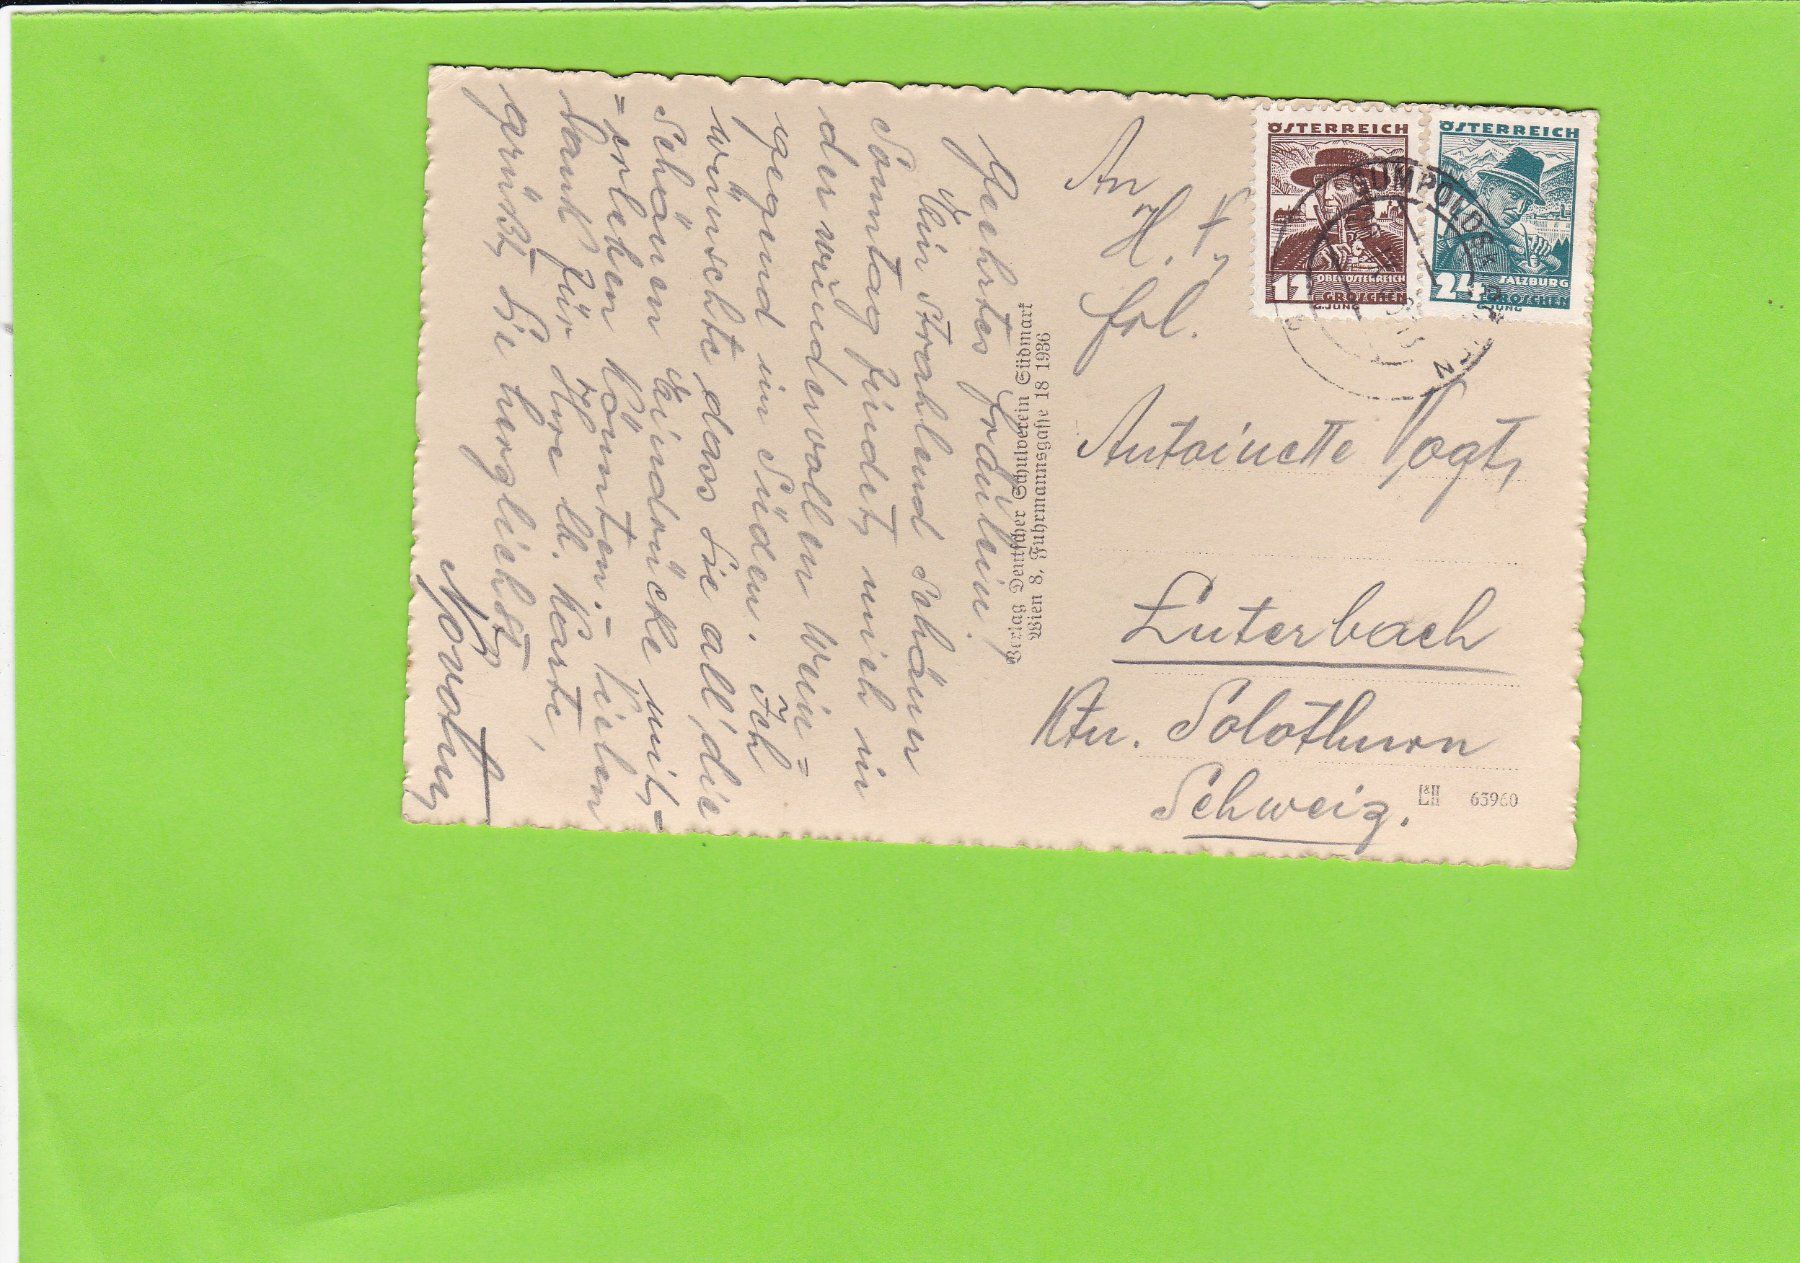 Geehrtes Fräulein!
Ein strahlend schöner
Sonntag findet mich in
der wundervollen Wein=
gegend im Süden. Ich
wünschte, dass Sie all' die
schönen Eindrücke mit=
=erleben könnten.- Vielen
Dank für Ihre lb. Karte,
grüßt Sie herzlichst
Novotny
Verlag Deutscher Schulverein Südmark
Wien 8, Fuhrmannsgasse 18 1936
An
Frl.
Antoinette Vogt,
Luterbach
Ktn. Solothurn
Schweiz.
63960
ÖSTERREICH
12
OBERÖSTERREICH
GROSCHEN
G.JUNG
ÖSTERREICH
24
SALZBURG
GROSCHEN
G.JUNG